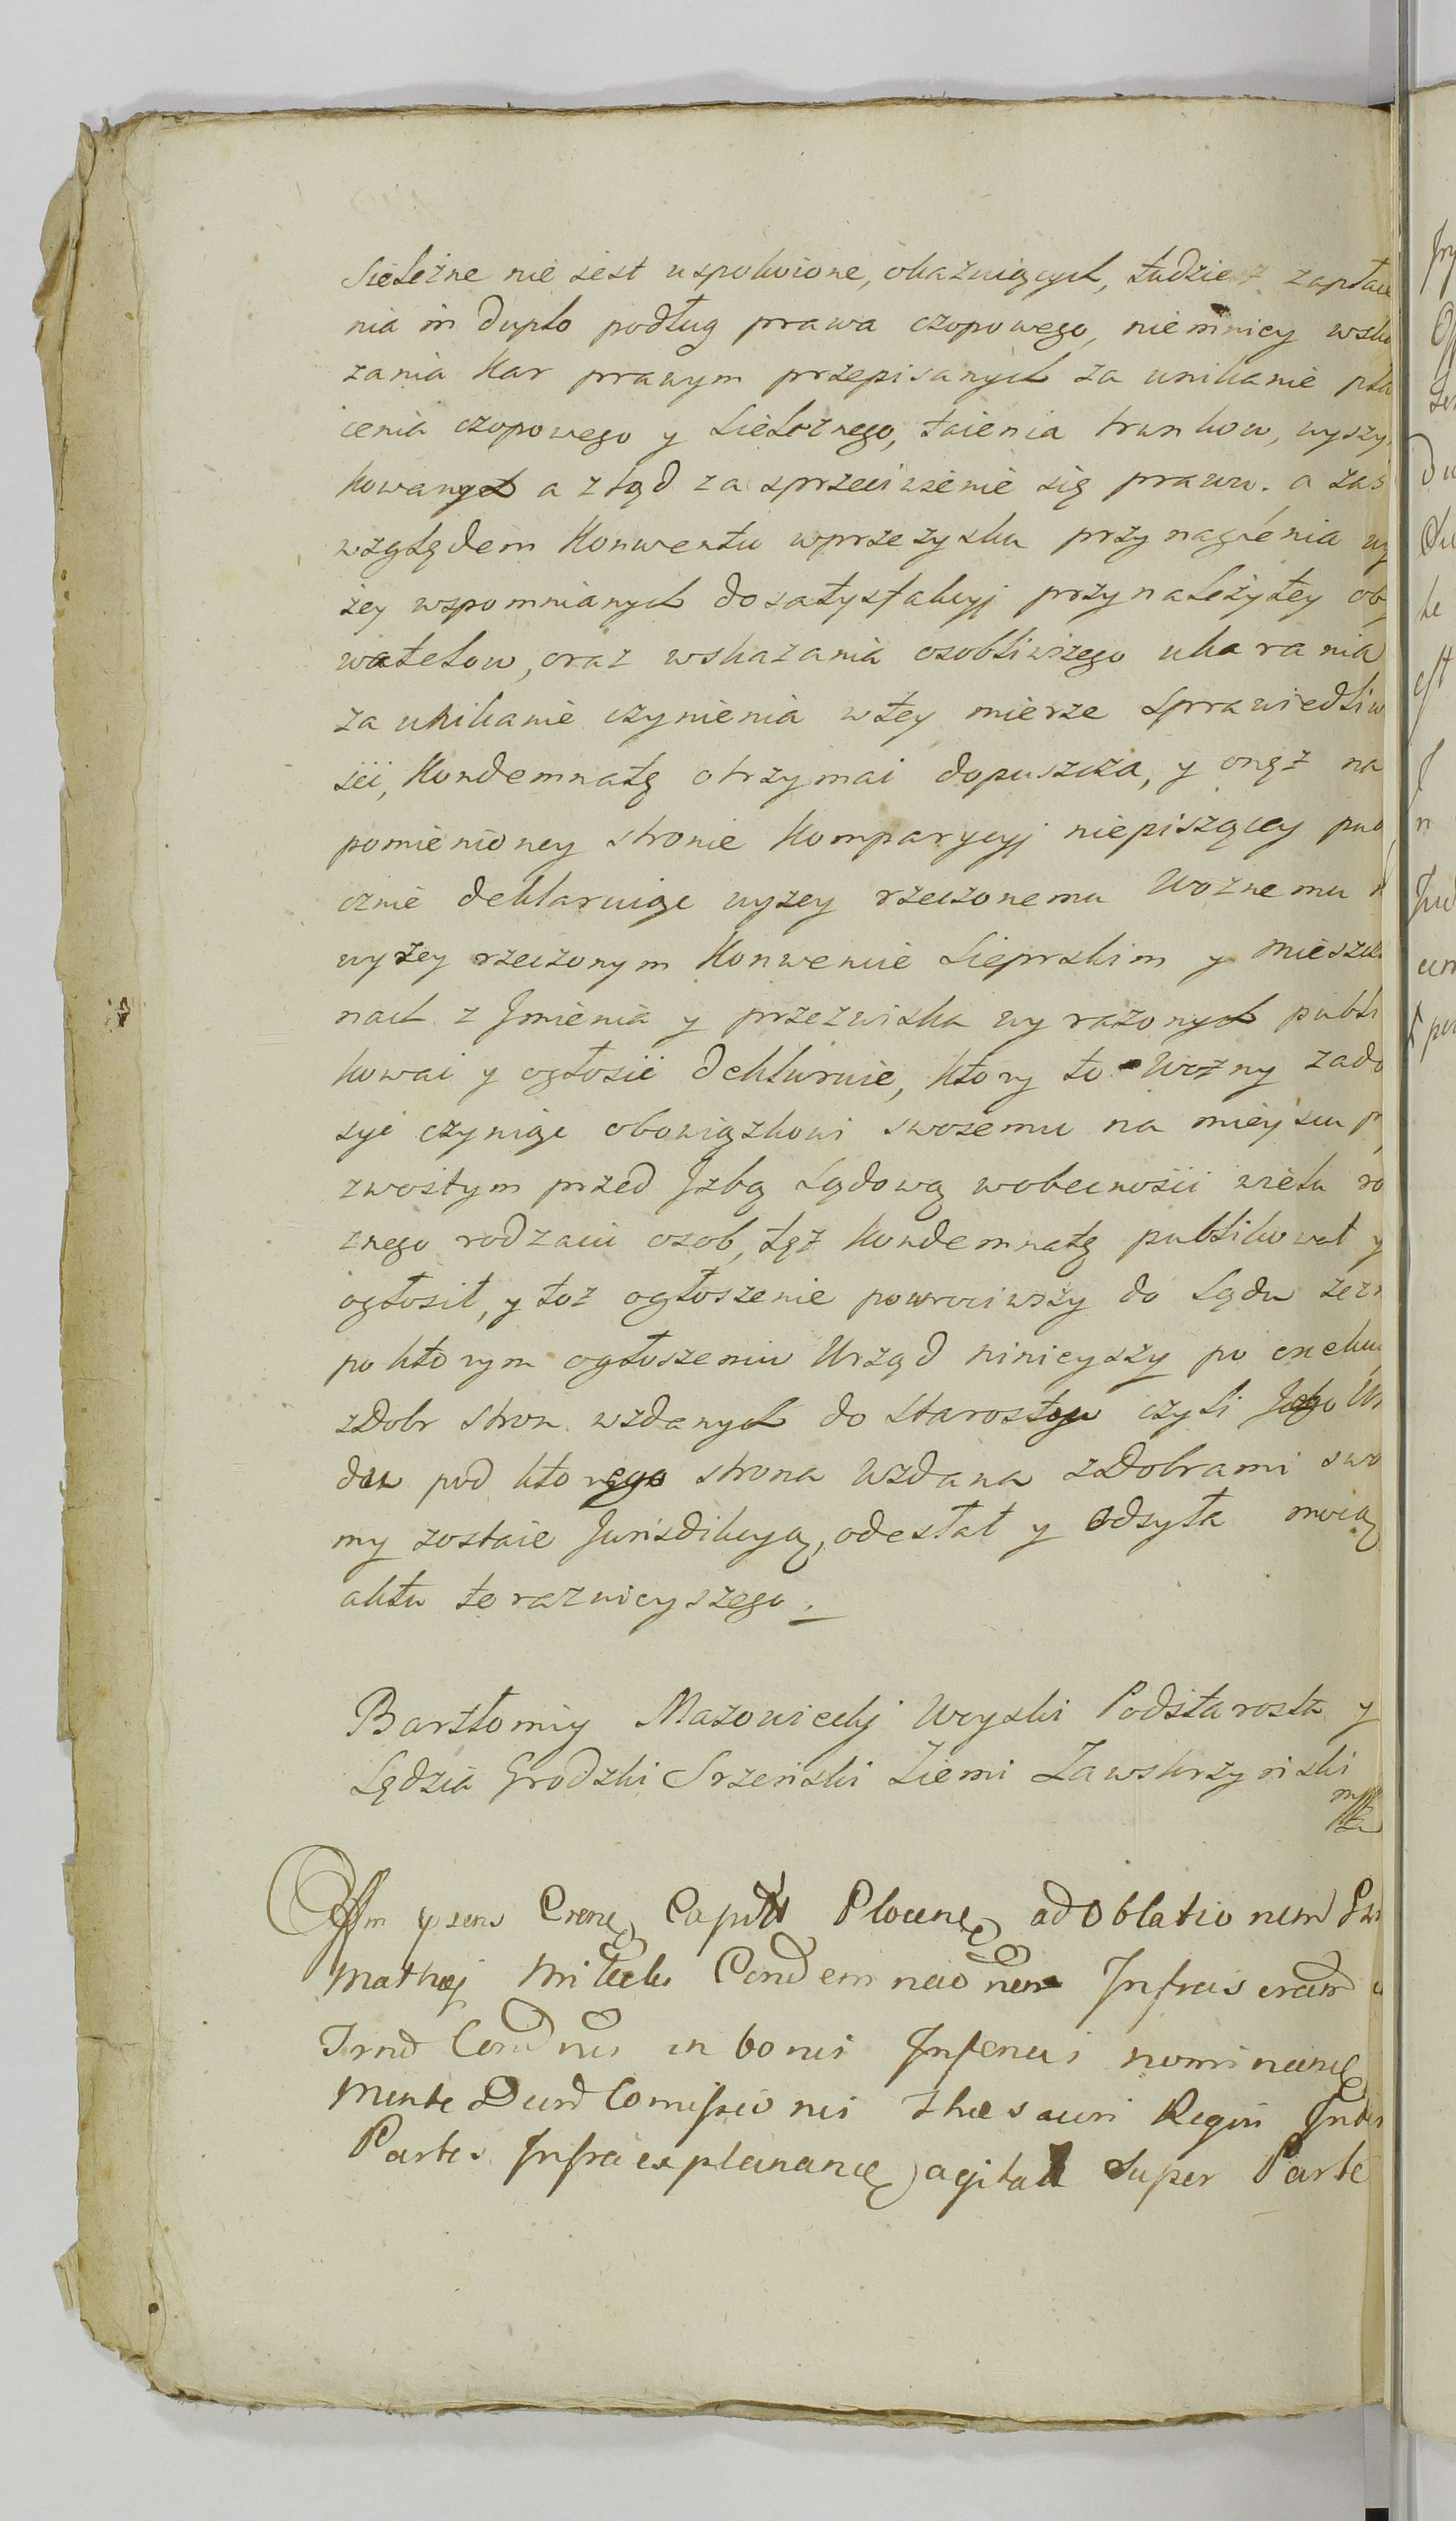 Sieleżne nie iest uspokoione, okazuiących, tudziesz zapłace
nia in duplo podług prawa czopowego, niemniey wska
zania kar prawym przepisanych za unikanie pła
cenia czopowego y Sielożnego, taienia trunkow, wyszy
kowanych a ztąd za sprzeciwienie się prawu. a zaś
względem Konwentu wprzezysku przynaglenia wy
żey wspomnianych do satysfakcyj przynależytey oby
watelow, oraz wskazania osobliwszego ukarania
za unikanie czynienia wtey mierze sprawiedliw
ści, Kondemnatę otrzymać dopuszcza, y onęż na
pomienioney stronie Komparycyj niepiszącey pub
cznie deklaruiąc wyżey rzeczonemu Woznemu
wyżey rzeczonym Konwencie Sieprskim y Mieszcza
nach z Jmienia y przezwiska wyrażonych publi
kować y ogłosić deklaruie, ktory to Wozny zado
syć czyniąc obowiązkowi swoiemu na mieyscu p
zwoitym przed Jzbą Sądową wobecności wielu ro
znego rodzaiu osob, tęż Kondemnatę publikował y
ogłosił, y toż ogłoszenie powrociwszy do Sądu zezn
po ktorym ogłoszeniu Urząd ninieyszy po exekuc
z Dobr stron wzdanych do Starosty czyli Jego Ur
du pod ktorego strona wzdana z Dobrami swo
my zostaie Jurisdikcyą, odesłał y odsyła mocą
aktu teraznieyszego.
Bartłomiy Mazowiecki Woyski Podstarosta y
Sędzia Grodzki Srzeński Ziemi Zawskrzyński
mp
Offm psens Crense Capitle Plocense ad Oblationem
Mathaej Condemnaonem Infrascram
Trnd Condnis in bonis Infenius nominane
Mente Comissionis Thesauri Regni Inter
Partes Infra explanane agitat Super Parte